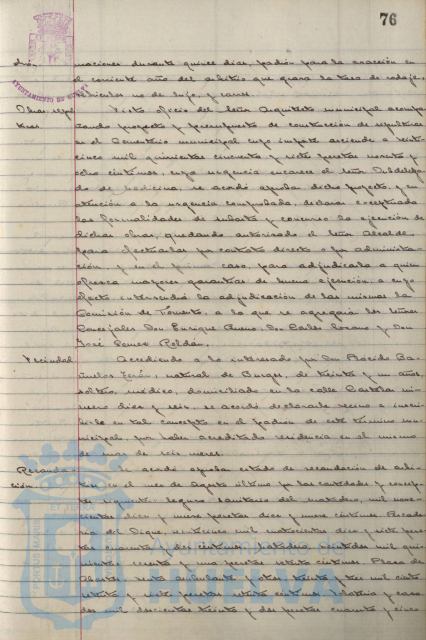 76
AYUNTAMIENTO DE HUELVA
maciones durante quince días, padrón para la exacción en
el corriente año del arbitrio que grava la tasa de rodaje,
vehículos no de lujo, y carros.
Visto oficio del Señor Arquitecto municipal acompa
ñando proyecto y presupuesto de construcción de sepulturas
en el Cementerio municipal cuyo importe asciende a veinti
cinco mil quinientas cincuenta y siete pesetas noventa y
ocho céntimos, cuya urgencia encarece el Señor Subdelega
do de Medicina, se acordó aprobar dicho proyecto, y en
atención a la urgencia comprobada, declarar exceptuada
las formalidades de subasta y concurso la ejecución de
dichas obras, quedando autorizado el Señor Alcalde
para efectuarlas por contrato directo o por administra
ción, y en el primer caso, para adjudicarla a quien
ofrezca mayores garantías de buena ejecución, a cuyo
efecto intervendrá la adjudicación de las mismas la
Comisión de Fomento, a la que se agregarán los Señores
Concejales Don Enrique Bueno, Don Carlos Lozano y Don
José Gómez Roldán.
Vecindad
Accediendo a lo interesado por Don Plácido Ba
ñuelos natural de Burgos, de treinta y un años,
soltero, médico, domiciliado en la calle Castelar nú
mero diez y seis, se acordó declararle vecino e inscri
birle en tal concepto en el padrón de este término mu
nicipal, por haber acreditado residencia en el mismo
de más de seis meses.
Recauda
ción
Se acordó aprobar estado de recaudación de arbi
trios en el mes de Agosto último por las cantidades y concep
tos siguientes: seguro sanitario del matadero, mil nove
cientas diez y nueve pesetas diez y nueve céntimos.
pesetas cuarenta y dos céntimos. Matadero, catorce mil qui
nientas sesenta y una pesetas setenta céntimos. Plaza de
Abastos, venta ambulante y otros, treinta y tres mil ciento
setenta y siete pesetas setenta céntimos.
dos mil doscientas treinta y dos pesetas cuarenta y cinco
Ayuntamiento de
HUELVA